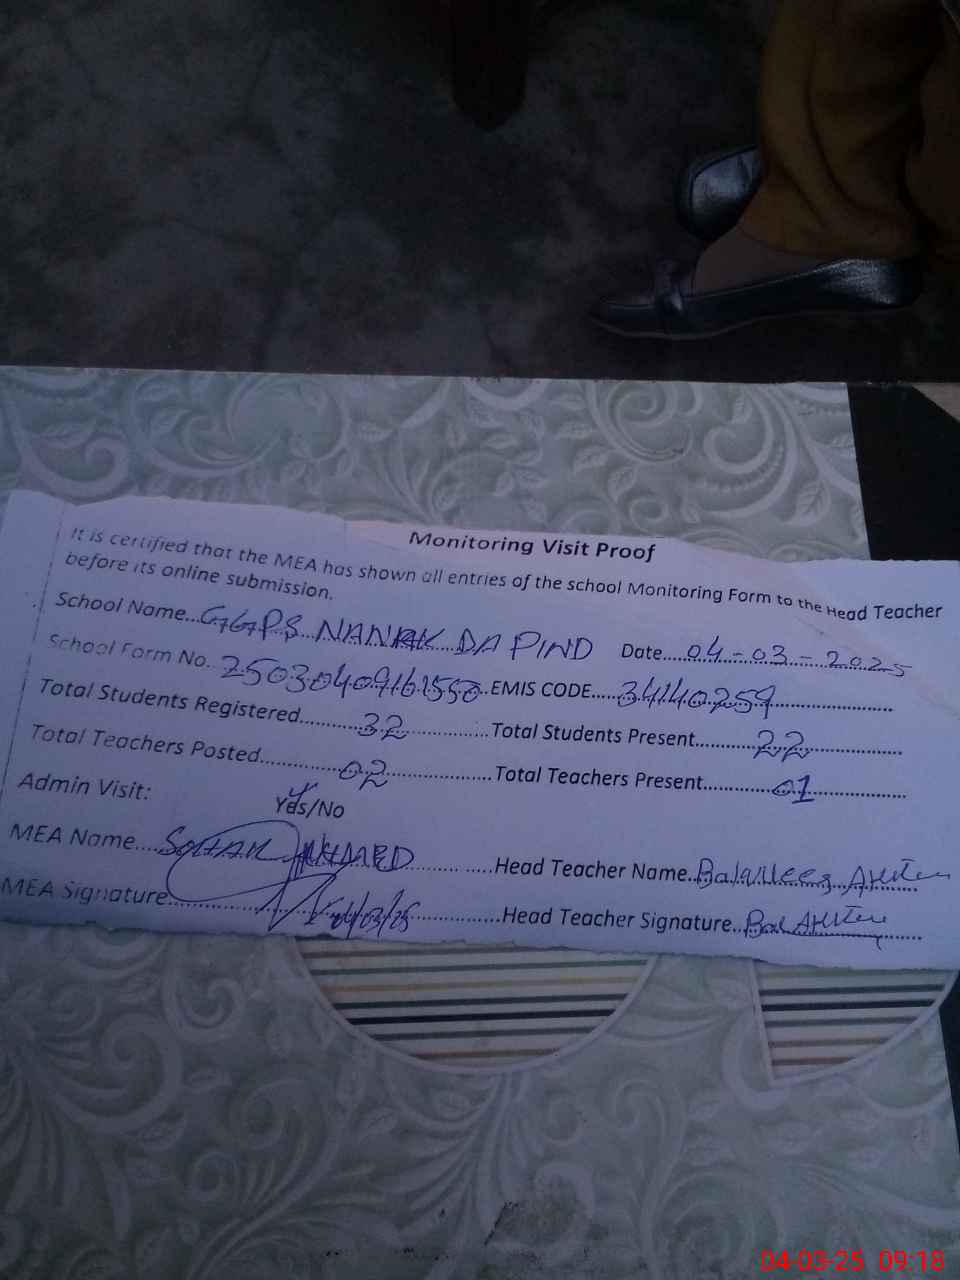 Monitoring Visit Proof
It is certified that the MEA has shown all entries of the school Monitoring Form to the Head Teacher
before its online submission.
School Name...GGPS NANAK DA PIND Date....04-03-2025
School Form No..25030409161550..EMIS CODE.....34140259
Total Students Registered..........32................Total Students Present..........22..............
Total Teachers Posted..............02................Total Teachers Present...........01..............
Admin Visit: Yes/No
MEA Name.... AHMED ...............Head Teacher Name..
MEA Signature.......04/03/25...............Head Teacher Signature..
04-03-25 09:18